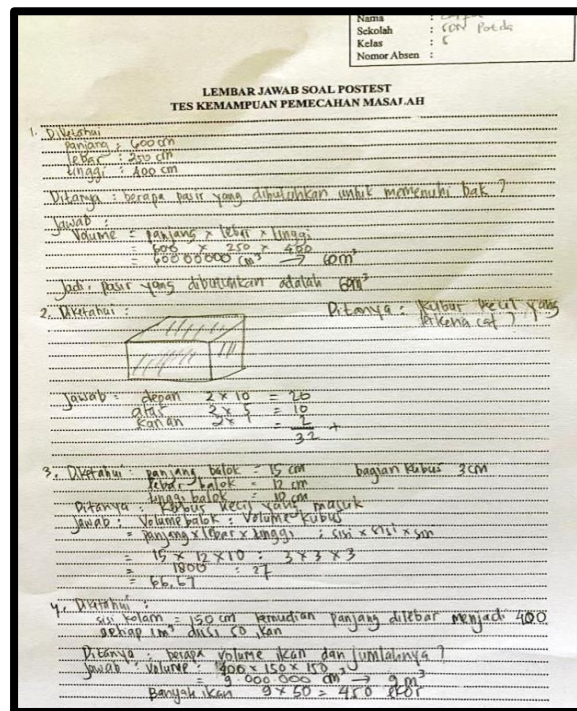 Nama :
Sekolah : SDN
Kelas : 5
Nomor Absen :
LEMBAR JAWAB SOAL POSTEST
TES KEMAMPUAN PEMECAHAN MASALAH
1. Diketahui
panjang : 600 cm
lebar : 250 cm
tinggi : 400 cm
Ditanya : berapa pasir yang dibutuhkan untuk memenuhi bak ?
Jawab :
Volume = panjang x lebar x tinggi
= 600 x 250 x 400
= 60000000 cm³ → 60m³
Jadi, pasir yang dibutuhkan adalah 60m³
2. Diketahui :
Ditanya : kubus kecil yang terkena cat ?
Jawab : depan 2 x 10 = 20
atas 2 x 5 = 10
kanan 2 x 1 = 2 +
32
3. Diketahui : panjang balok = 15 cm bagian kubus 3cm
lebar balok = 12 cm
tinggi balok = 10 cm
Ditanya : kubus kecil yang masuk
Jawab : Volume balok : Volume kubus
= panjang x lebar x tinggi : sisi x sisi x
= 15 x 12 x 10 : 3 x 3 x 3
= 1800 : 27
= 66,67
4. Diketahui :
sisi kolam = 150 cm kemudian panjang dilebar menjadi 400
setiap 1m³ diisi 50 ikan
Ditanya : berapa volume ikan dan jumlahnya ?
Jawab : volume : 400 x 150 x 150
= 9.000.000 cm³ → 9 m³
Banyak ikan 9 x 50 = 450 ekor